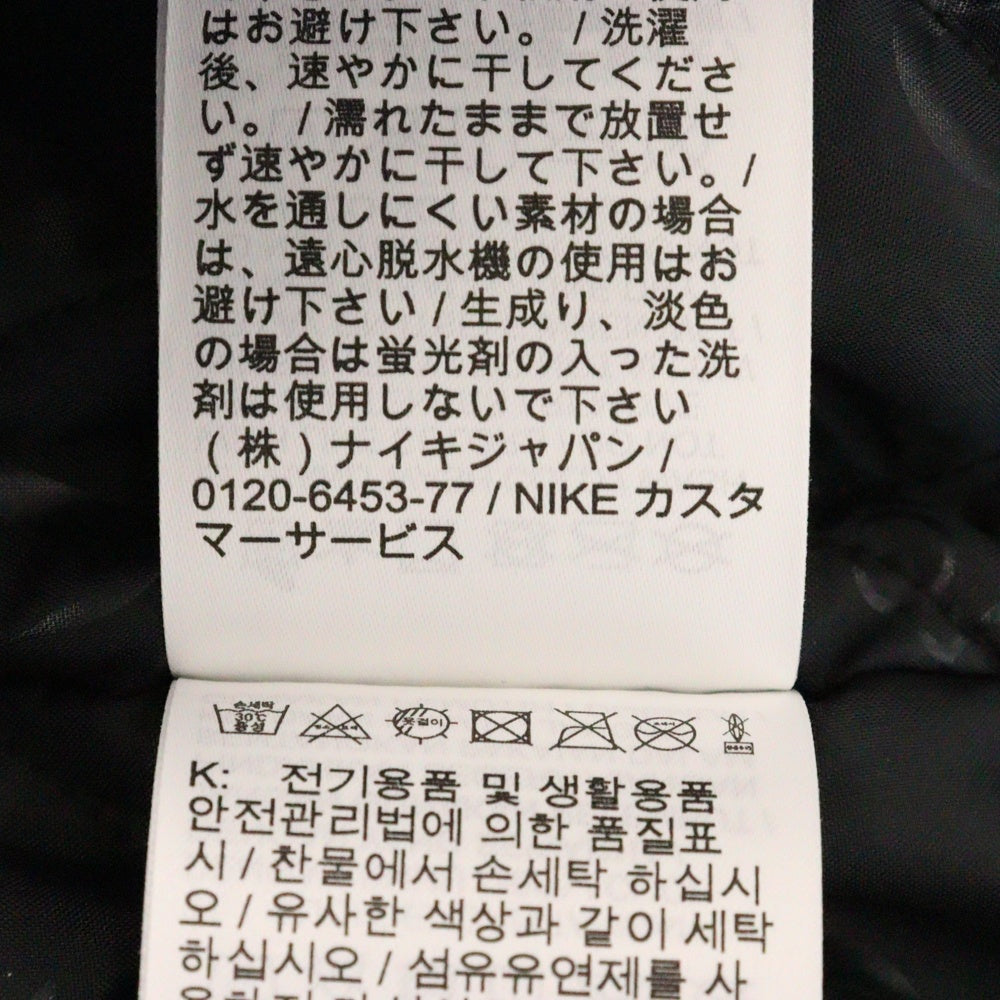 はお避け下さい。 / 洗濯
後、速やかに干してくださ
い。 / 濡れたままで放置せ
ず速やかに干して下さい。 /
水を通しにくい素材の場合
は、遠心脱水機の使用はお
避け下さい / 生成り、淡色
の場合は蛍光剤の入った洗
剤は使用しないで下さい
( 株 ) ナイキジャパン /
0120-6453-77 / NIKE カスタ
マーサービス
손세탁
30℃
중성
옷걸이
K: 전기용품 및 생활용품
안전관리법에 의한 품질표
시 / 찬물에서 손세탁 하십시
오 / 유사한 색상과 같이 세탁
하십시오 / 섬유유연제를 사